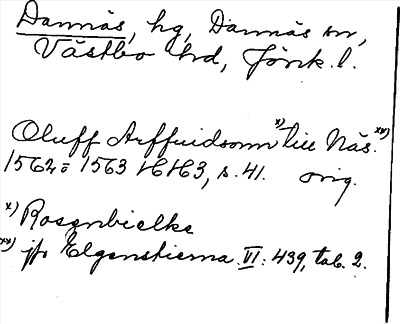 Dannäs, hg, Dannäs sn,
Västbo hd, Jönk. l.
Oluff Arffuidsonn x) till Näs. xx)
1562 = 1563 HH3, s. 41. orig.
x) Rosenbielke
xx) jfr Elgenstierna VI: 439, tab. 2.